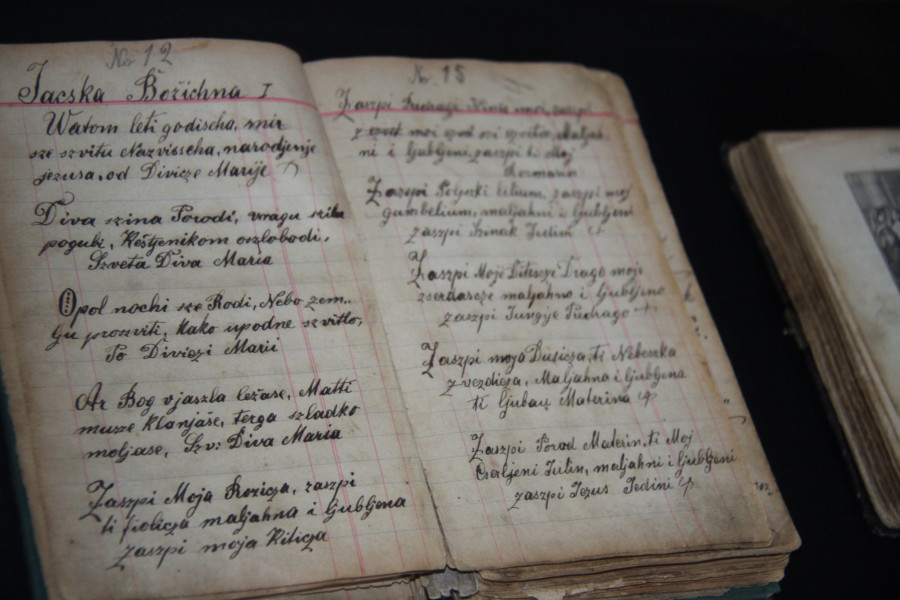 No 12
Jacska Božichna I
Vvatom leti godischa, mir
sze szvitu Nazvisscha, narodjenje
jezusa, od Divicze Marije
Diva szina Porodi, vragu szilu
pogubi, Kèštjenikom oszlobodi,
Szveta Diva Maria
Opol nochi sze Rodi, Nebo zem..
lju proszviti, Kako upodne szvitlo,
Po Diviczi Marii
Ar Bog vjaszla ležase, Matti
musze klanjaše, terga szladko
moljase, Szv: Diva Maria
Zaszpi Moja Rozicza, zaszpi
ti fiolicza maljahna i ljubljena
zaszpi moja Kiticza
Nr. 15
Zaszpi Predragi moi, zaszpi
moi
ni i ljubljeni, zaszpi ti Moj
Zaszpi Poljszki lilium, zaszpi moj
gumbelium, maljahni i ljubljeni
zaszpi Szinak Jedini
Zaszpi Moje Ditesze Drago moje
szerdascze maljahno i ljubljeno
zaszpi Predrago
Zaszpi moja Dusicza, ti Nebeszka
zvezdicza, Maljahna i ljubljena
ti ljubav Materina
Zaszpi Porod Materin, ti Moj
Cserljeni Tulin, maljahni i ljubljeni
zaszpi Jezus Jedini